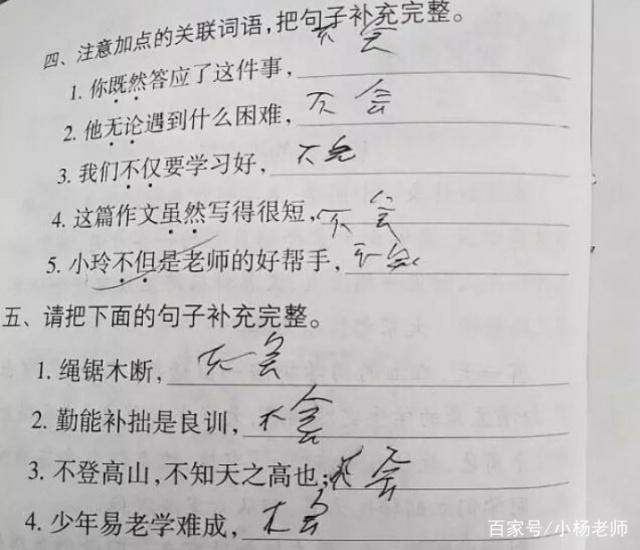 四、注意加点的关联词语,把句子补充完整。
1. 你既然答应了这件事, 不会
2. 他无论遇到什么困难, 不会
3. 我们不仅要学习好, 不会
4. 这篇作文虽然写得很短, 不会
5. 小玲不但是老师的好帮手, 不会
五、请把下面的句子补充完整。
1. 绳锯木断, 不会
2. 勤能补拙是良训, 不会
3. 不登高山,不知天之高也; 不会
4. 少年易老学难成, 不会
百家号/小杨老师